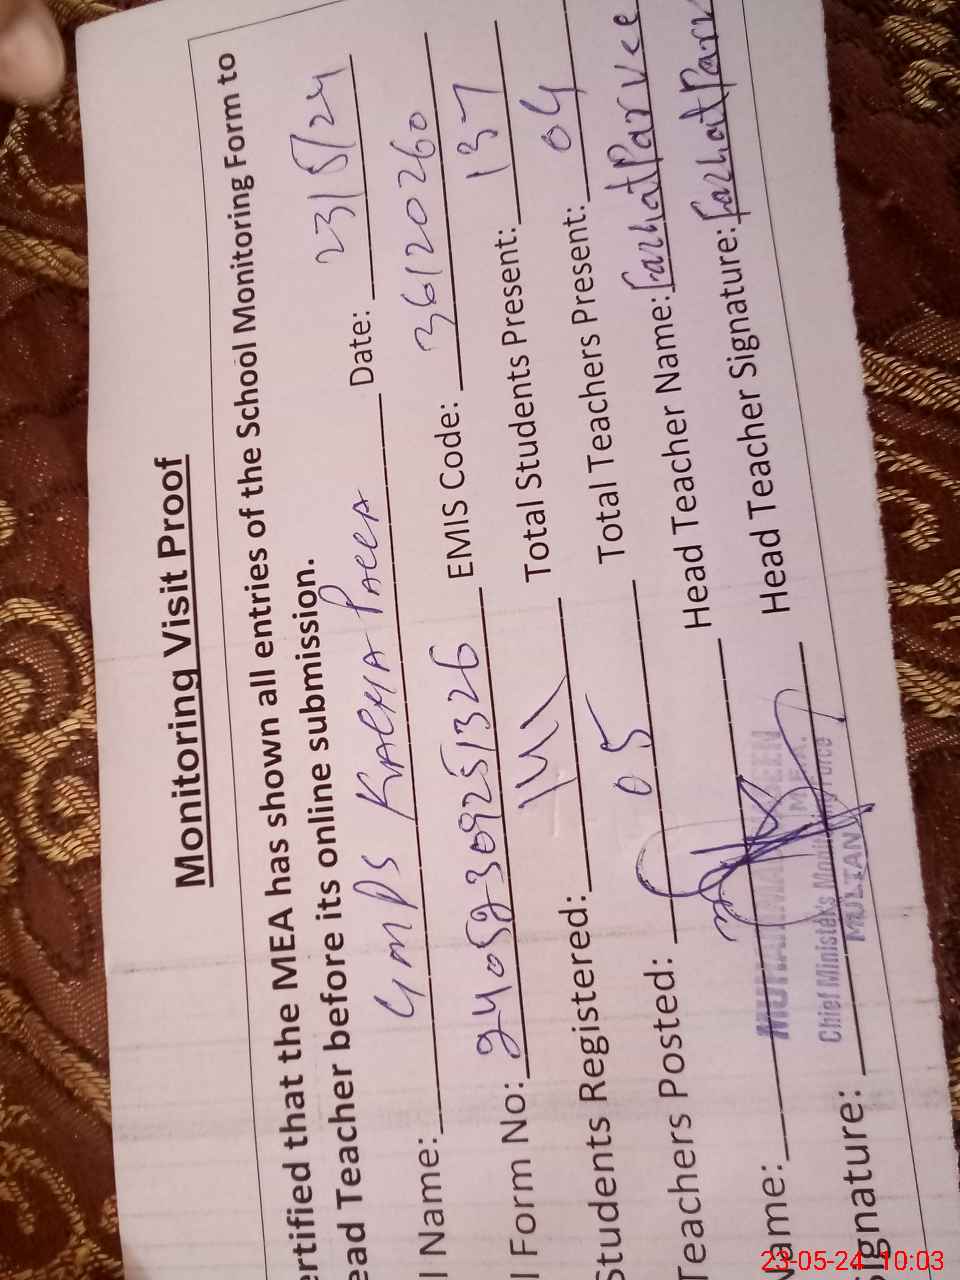 Monitoring Visit Proof
ertified that the MEA has shown all entries of the School Monitoring Form to
ead Teacher before its online submission.
l Name: GMPS Date: 23/5/24
l Form No: EMIS Code: 36120260
Students Registered: Total Students Present: 137
Teachers Posted: 05 Total Teachers Present: 04
Name: Head Teacher Name: Farhat Parvee
ignature: Head Teacher Signature: Farhat Parv
Chief Minister's Monitoring Force
MULTAN
23-05-24 10:03